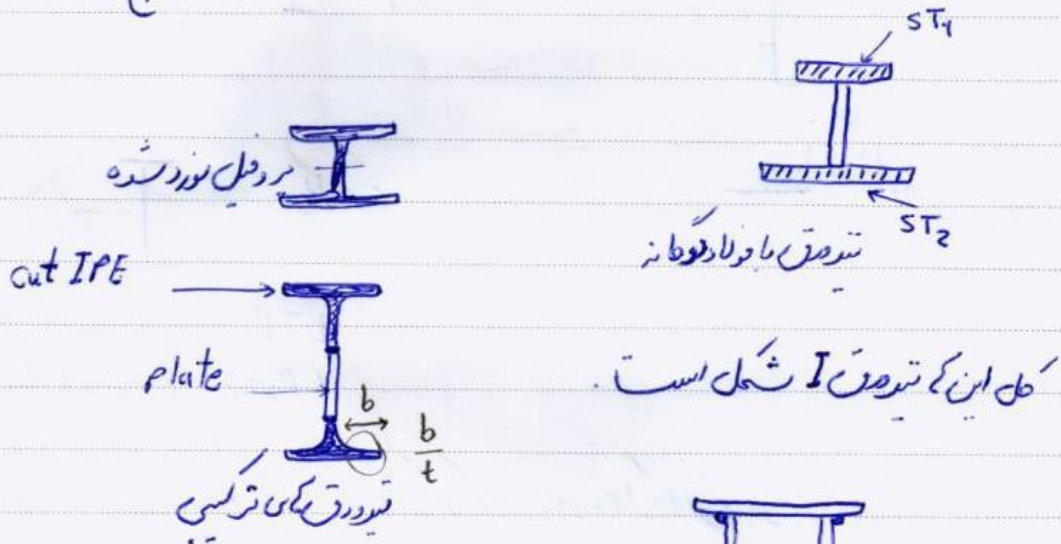 ST1
پروفیل نورد شده
ST2
تیرورق با فولاد دوگانه
cut IPE
plate
کل این ها تیرورق I شکل است.
b
b
t
تیرورق های ترکیبی